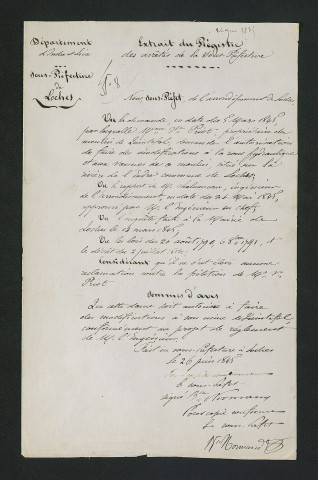 Département
d'Indre et Loire
Sous-Préfecture
de
Loches
Extrait du Régistre
des arrêtés de la Sous-Préfecture
Nous, sous-Préfet de l'arrondissement de Loches
Vu la demande, en date du 5 Mars 1845,
par laquelle Mme Ve Priot, propriétaire du
moulin de
de faire des modifications à la roue hydraulique
et aux vannes de ce moulin, situé sur la
rivière de l'Indre commune de Loches
Vu le rapport de Mr ingénieur
de l'arrondissement, en date du 24 Mai 1845,
approuvé par Mr l'Ingénieur en chef
Vu l'enquête faite à la Mairie de
Loches le mars 1845
Vu les lois des 20 août 1790, 6 8bre 1791, et
le décret du
Considérant qu'il ne s'est élevé aucune
réclamation contre la pétition de Me Ve
Priot
Sommes d'avis
Que cette dame soit autorisée à faire
des modifications à son usine de
conformément au projet de règlement
de Mr l'Ingénieur.
Fait en sous-Préfecture à Loches
le 26 juin 1845
Le sous-Préfet
signé Normand
Pour copie conforme
Le sous-Préfet
Normand